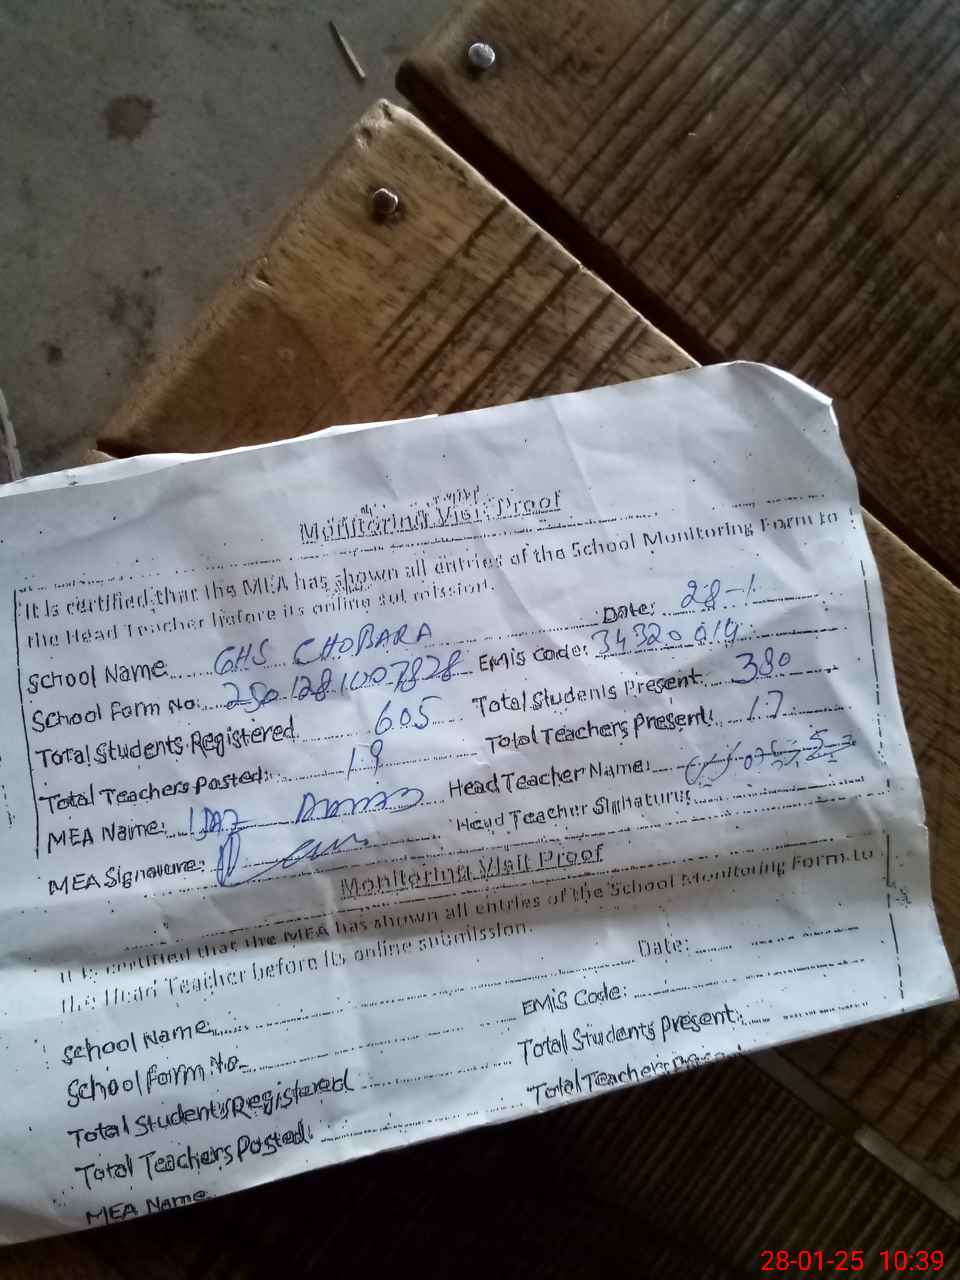 Monitoring Visit Proof
It is certified that the MEA has shown all entries of the School Monitoring Form to
the Head Teacher before its online submission.
Date: 28-1
School Name GHS CHOBARA
EMIS Code: 34320019
School Form No: 2801281007828
Total Students Present 380
Total Students Registered 605
Total Teachers Present: 17
Total Teachers Posted: 19
Head Teacher Name:
MEA Name: IJAZ
Head Teacher Signature:
MEA Signature:
Monitoring Visit Proof
It is certified that the MEA has shown all entries of the School Monitoring Form to
the Head Teacher before its online submission.
Date:
School Name
EMIS Code:
School Form No.
Total Students Present:
Total Students Registered
Total Teachers Present
Total Teachers Posted:
MEA Name
28-01-25 10:39